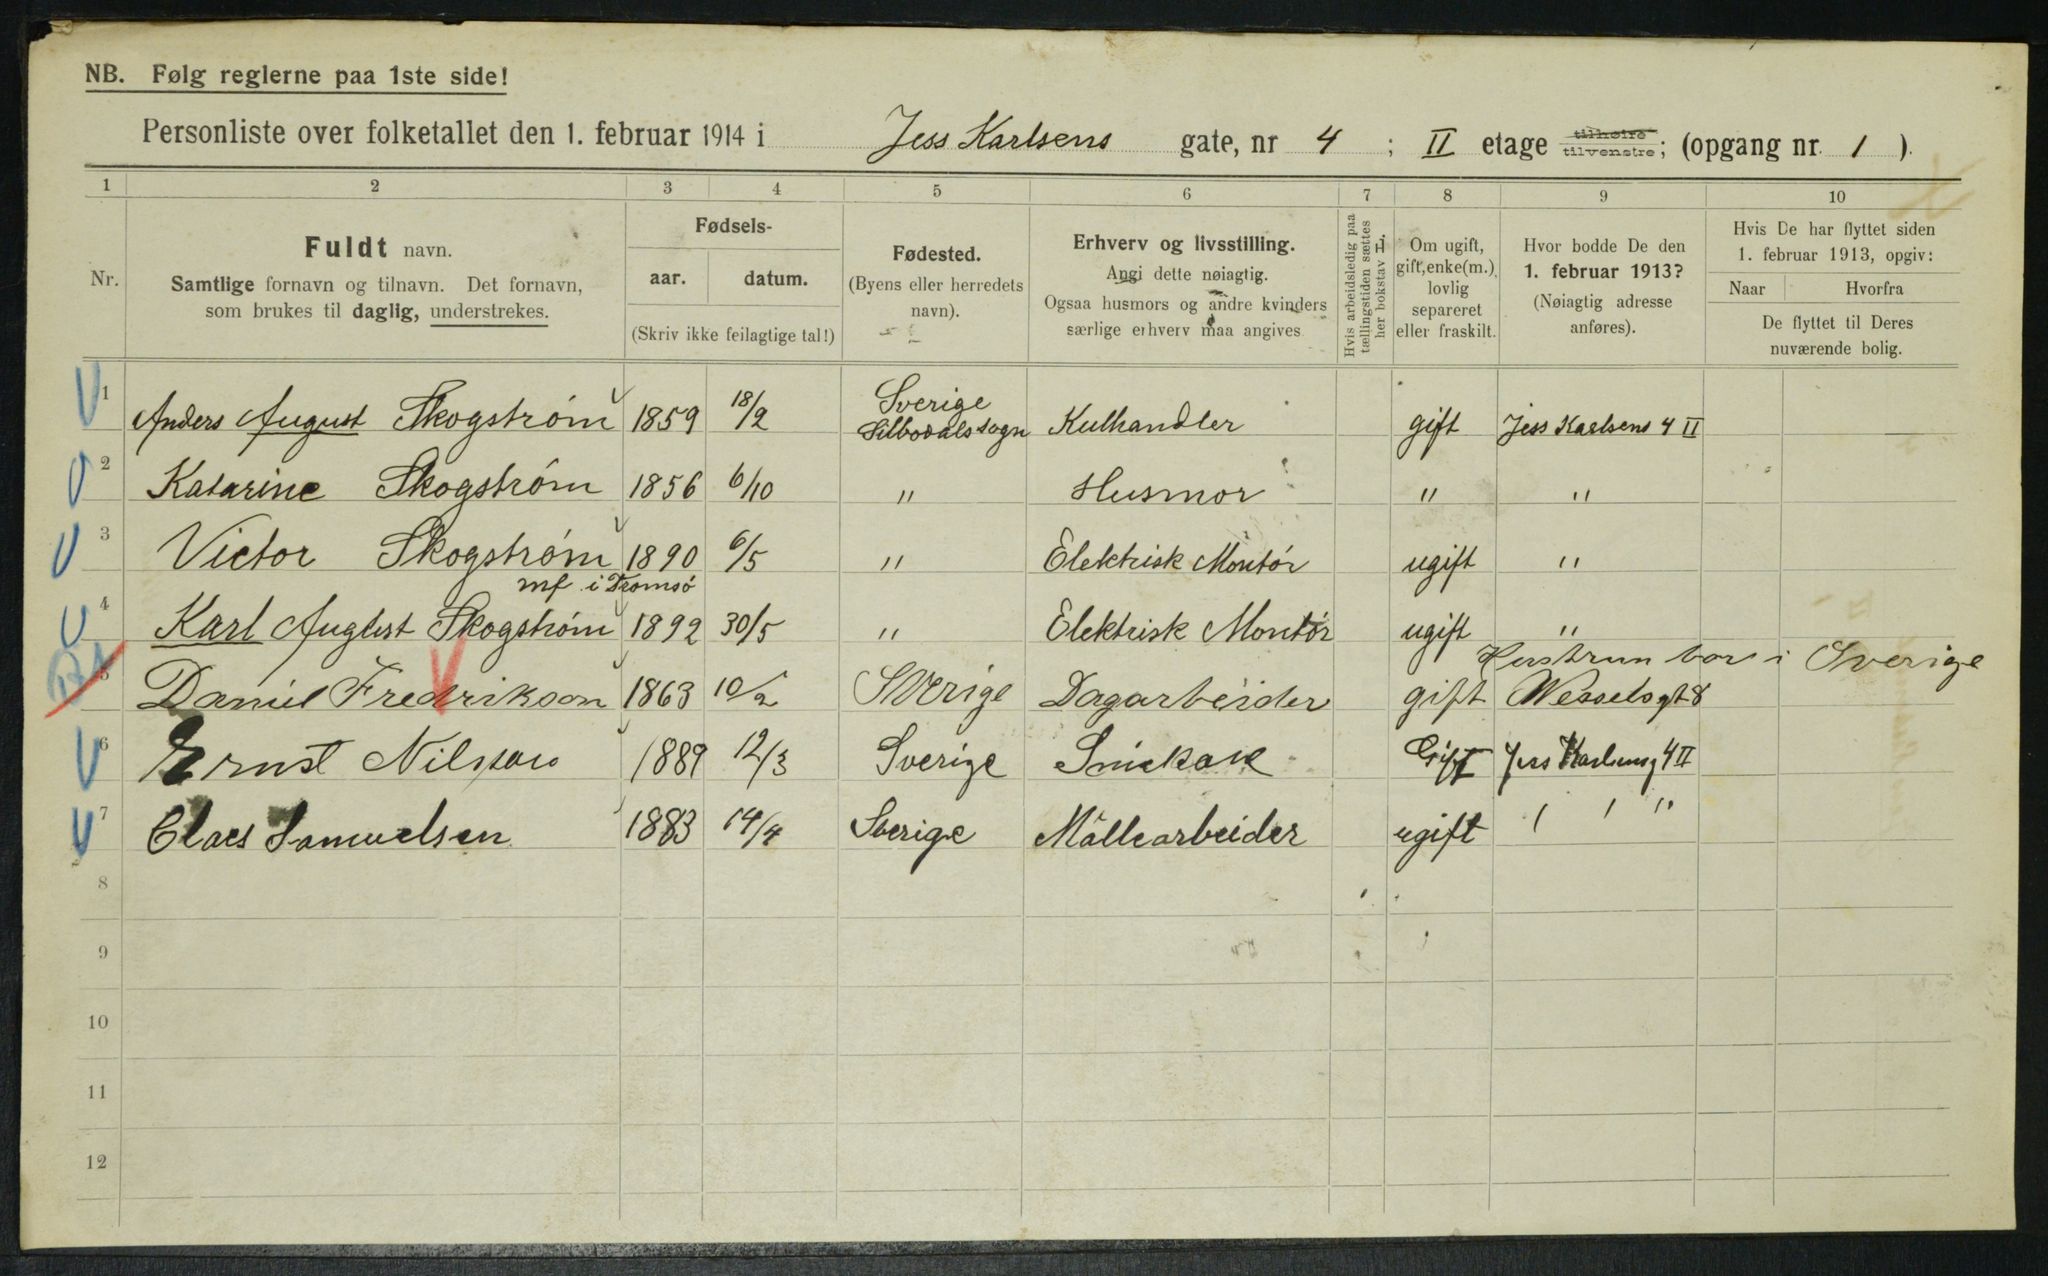 NB. Følg reglerne paa 1ste side!
Personliste over folketallet den 1. februar 1914 i Jess Karlsens gate, nr 4 ; II etage tilhøire tilvenstre; (opgang nr. 1 ).
1 2 3 4 5 6 7 8 9 10
Nr.
Fuldt navn.
Samtlige fornavn og tilnavn. Det fornavn,
som brukes til daglig, understrekes.
Fødsels-
aar. datum.
(Skriv ikke feilagtige tal!)
Fødested.
(Byens eller herredets
navn).
Erhverv og livsstilling.
Angi dette nøiagtig.
Ogsaa husmors og andre kvinders
særlige erhverv maa angives
Hvis arbeidsledig paa
tællingstiden sættes
her bokstav L.
Om ugift,
gift, enke(m.),
lovlig
separeret
eller fraskilt.
Hvor bodde De den
1. februar 1913?
(Nøiagtig adresse
anføres).
Hvis De har flyttet siden
1. februar 1913, opgiv:
Naar Hvorfra
De flyttet til Deres
nuværende bolig.
1 Anders August Skogstrøm 1859 18/2 Sverige Silbodals sogn Kulhandler gift Jess Karlsens 4 II
2 Katarine Skogstrøm 1856 6/10 " Husmor " "
3 Victor Skogstrøm 1890 6/5 " Elektrisk Montør ugift "
mf i Tromsö
4 Karl August Skogstrøm 1892 30/5 " Elektrisk Montør ugift "
Hustrun bor i Sverige
5 Daniel Fredrikson 1863 10/2 Sverige Dagarbeider gift Wesselsgt 8
6 Ernst Nilsson 1889 12/3 Sverige Snickare Gift Jess Karlsensg 4 II
7 Claes Samuelsen 1883 14/4 Sverige Mållearbeider ugift ' ' "
8
9
10
11
12